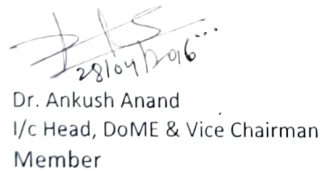 28/04/2016
Dr. Ankush Anand
I/c Head, DoME & Vice Chairman
Member